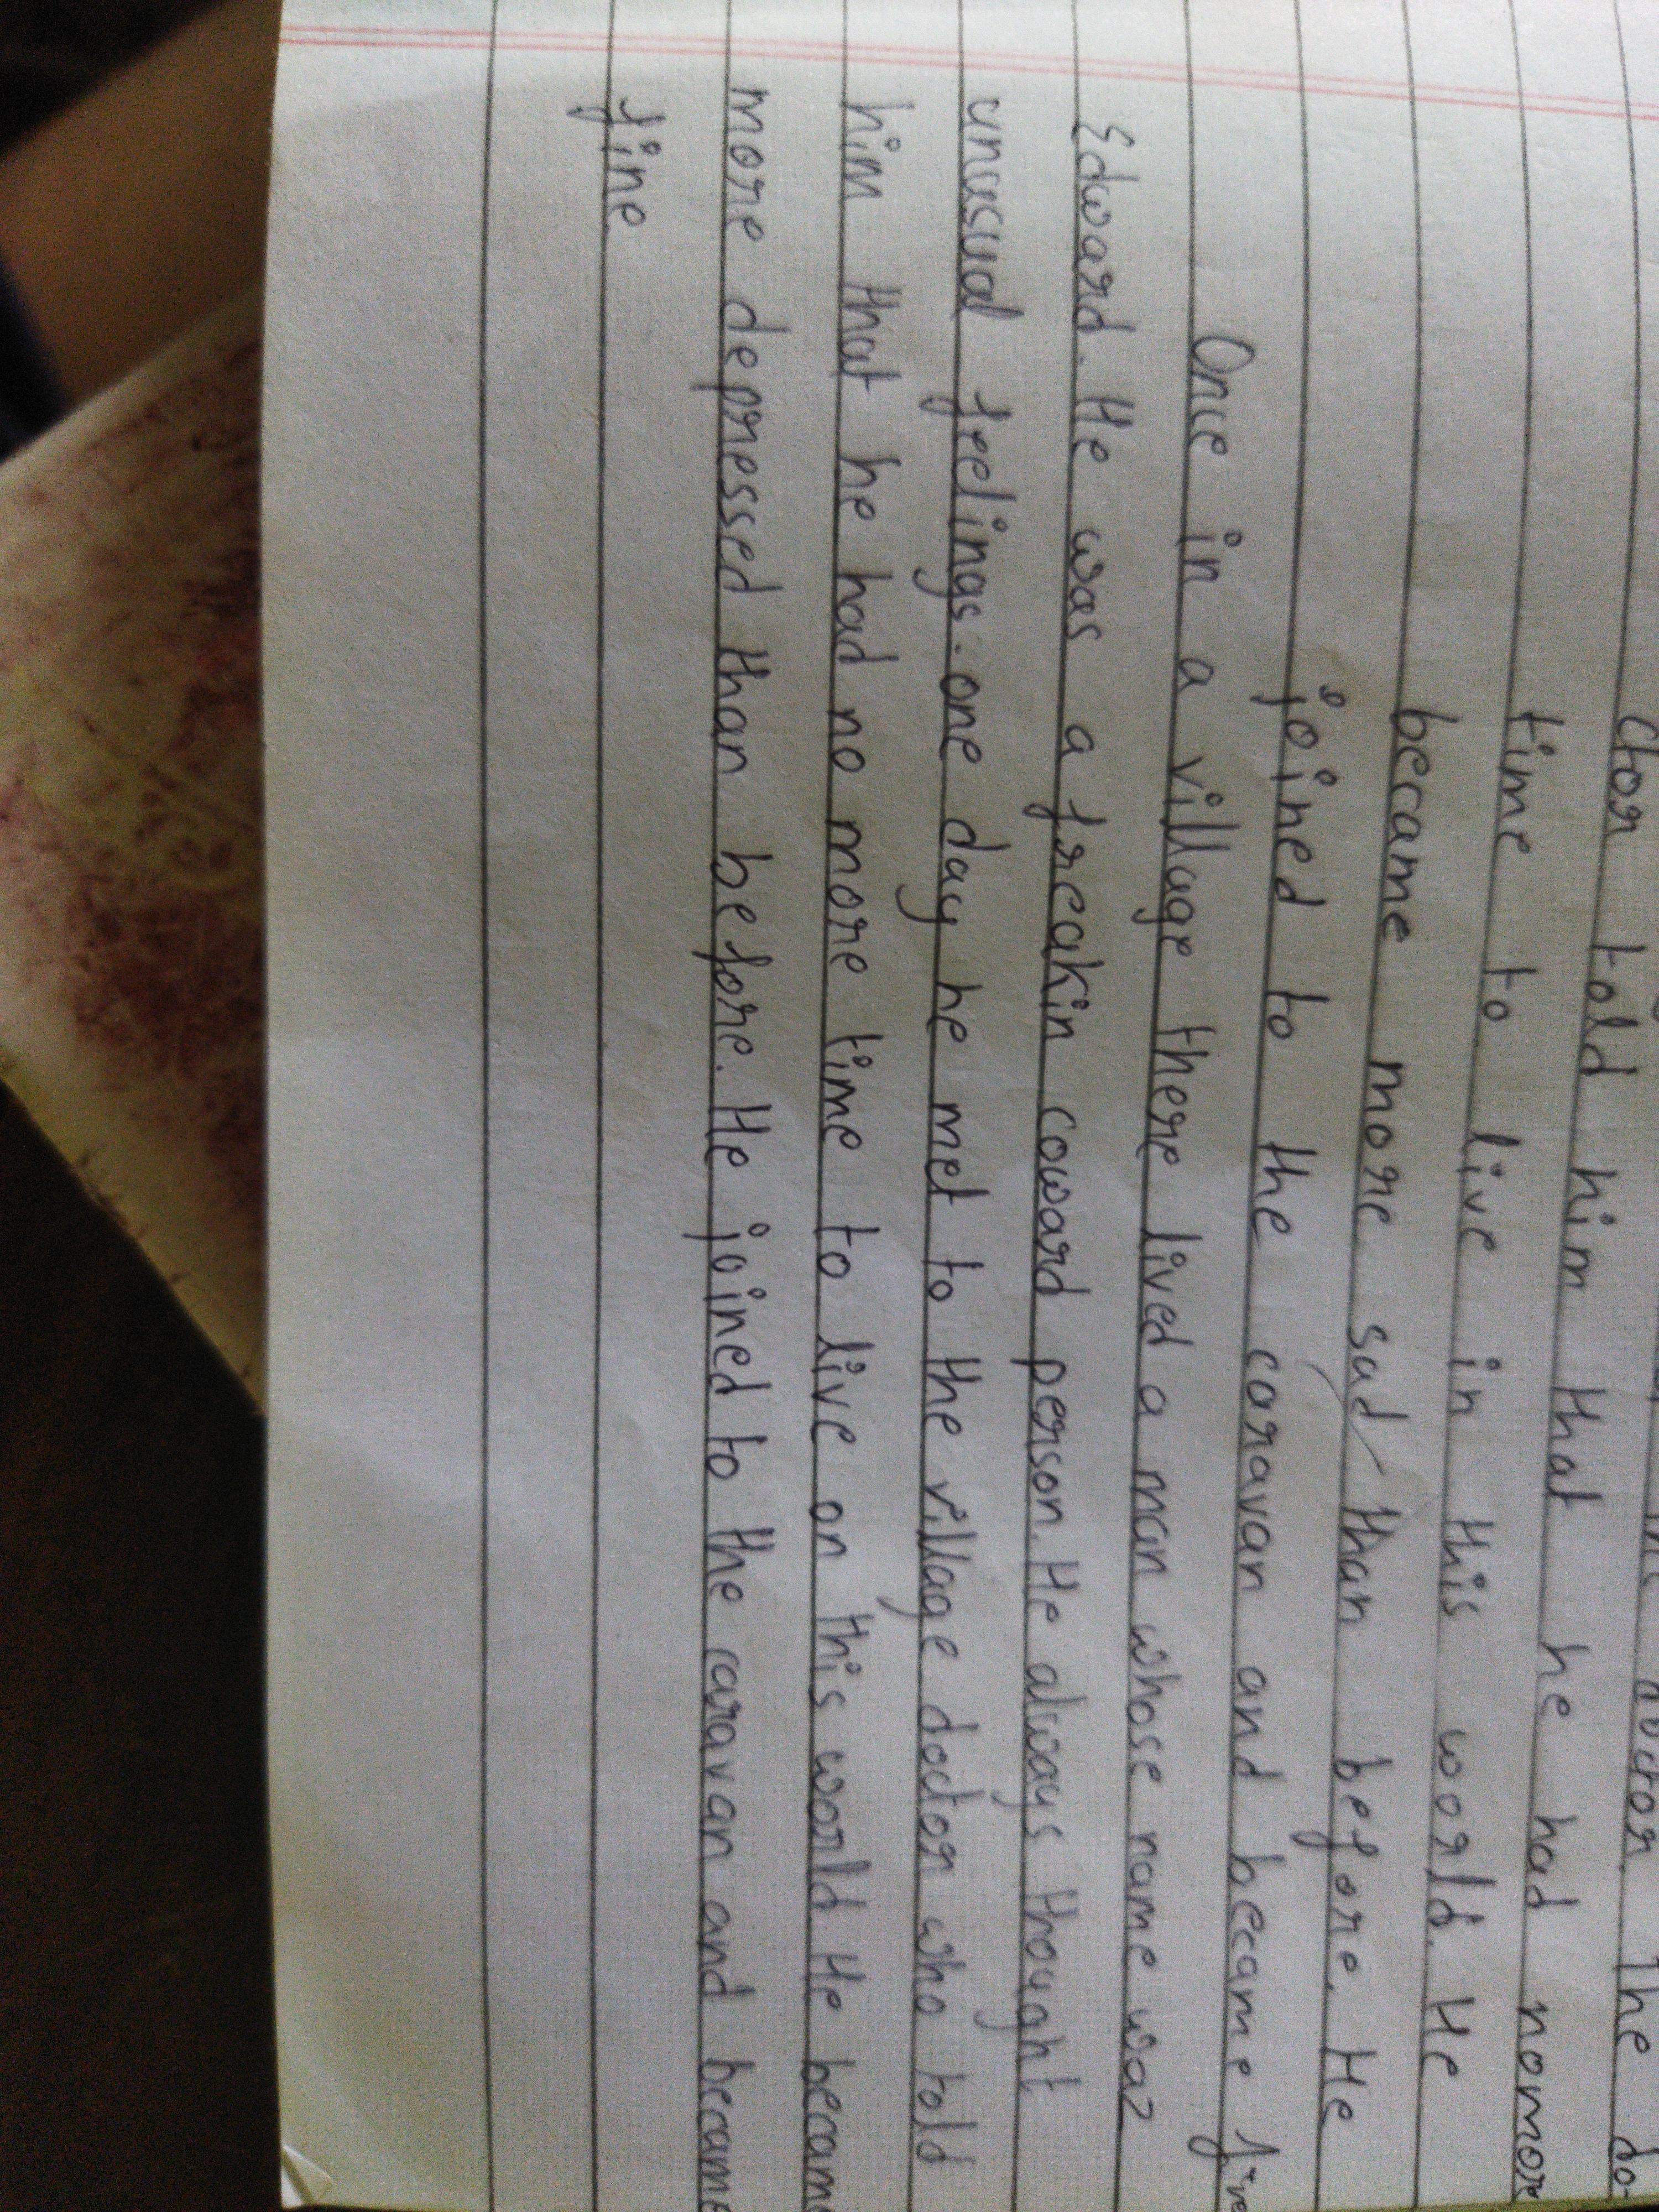 doctor. The do-
ctor told him that he had nomore
time to live in this world. He
became more sad than before. He
joined to the caravan and became fine
Once in a village there lived a man whose name waz
Edward. He was a freakin coward person. He always thought
unusual feelings. one day he met to the village doctor who told
him that he had no more time to live on this world He became
more depressed than before. He joined to the caravan and became
fine